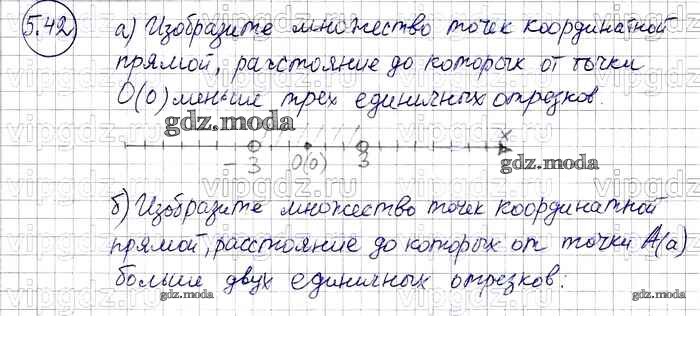 5.42 а) Изобразите множество точек координатной
прямой, расстояние до которых от точки
O(0) меньше трех единичных отрезков.
gdz.moda
x
-3 O(0) 3
gdz.moda
vipgdz.ru
б) Изобразите множество точек координатной
прямой, расстояние до которых от точки A(a)
больше двух единичных отрезков:
gdz.moda
gdz.moda